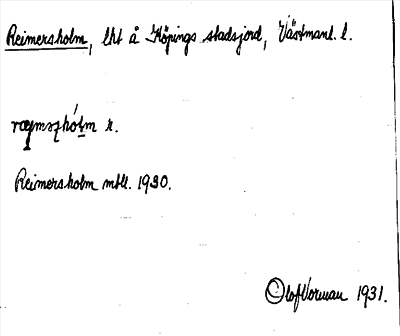 Reimersholm, lht å Köpings stadsjord, Västmanl. l.
Reimersholm mtll. 1930.
Olof Norman 1931.